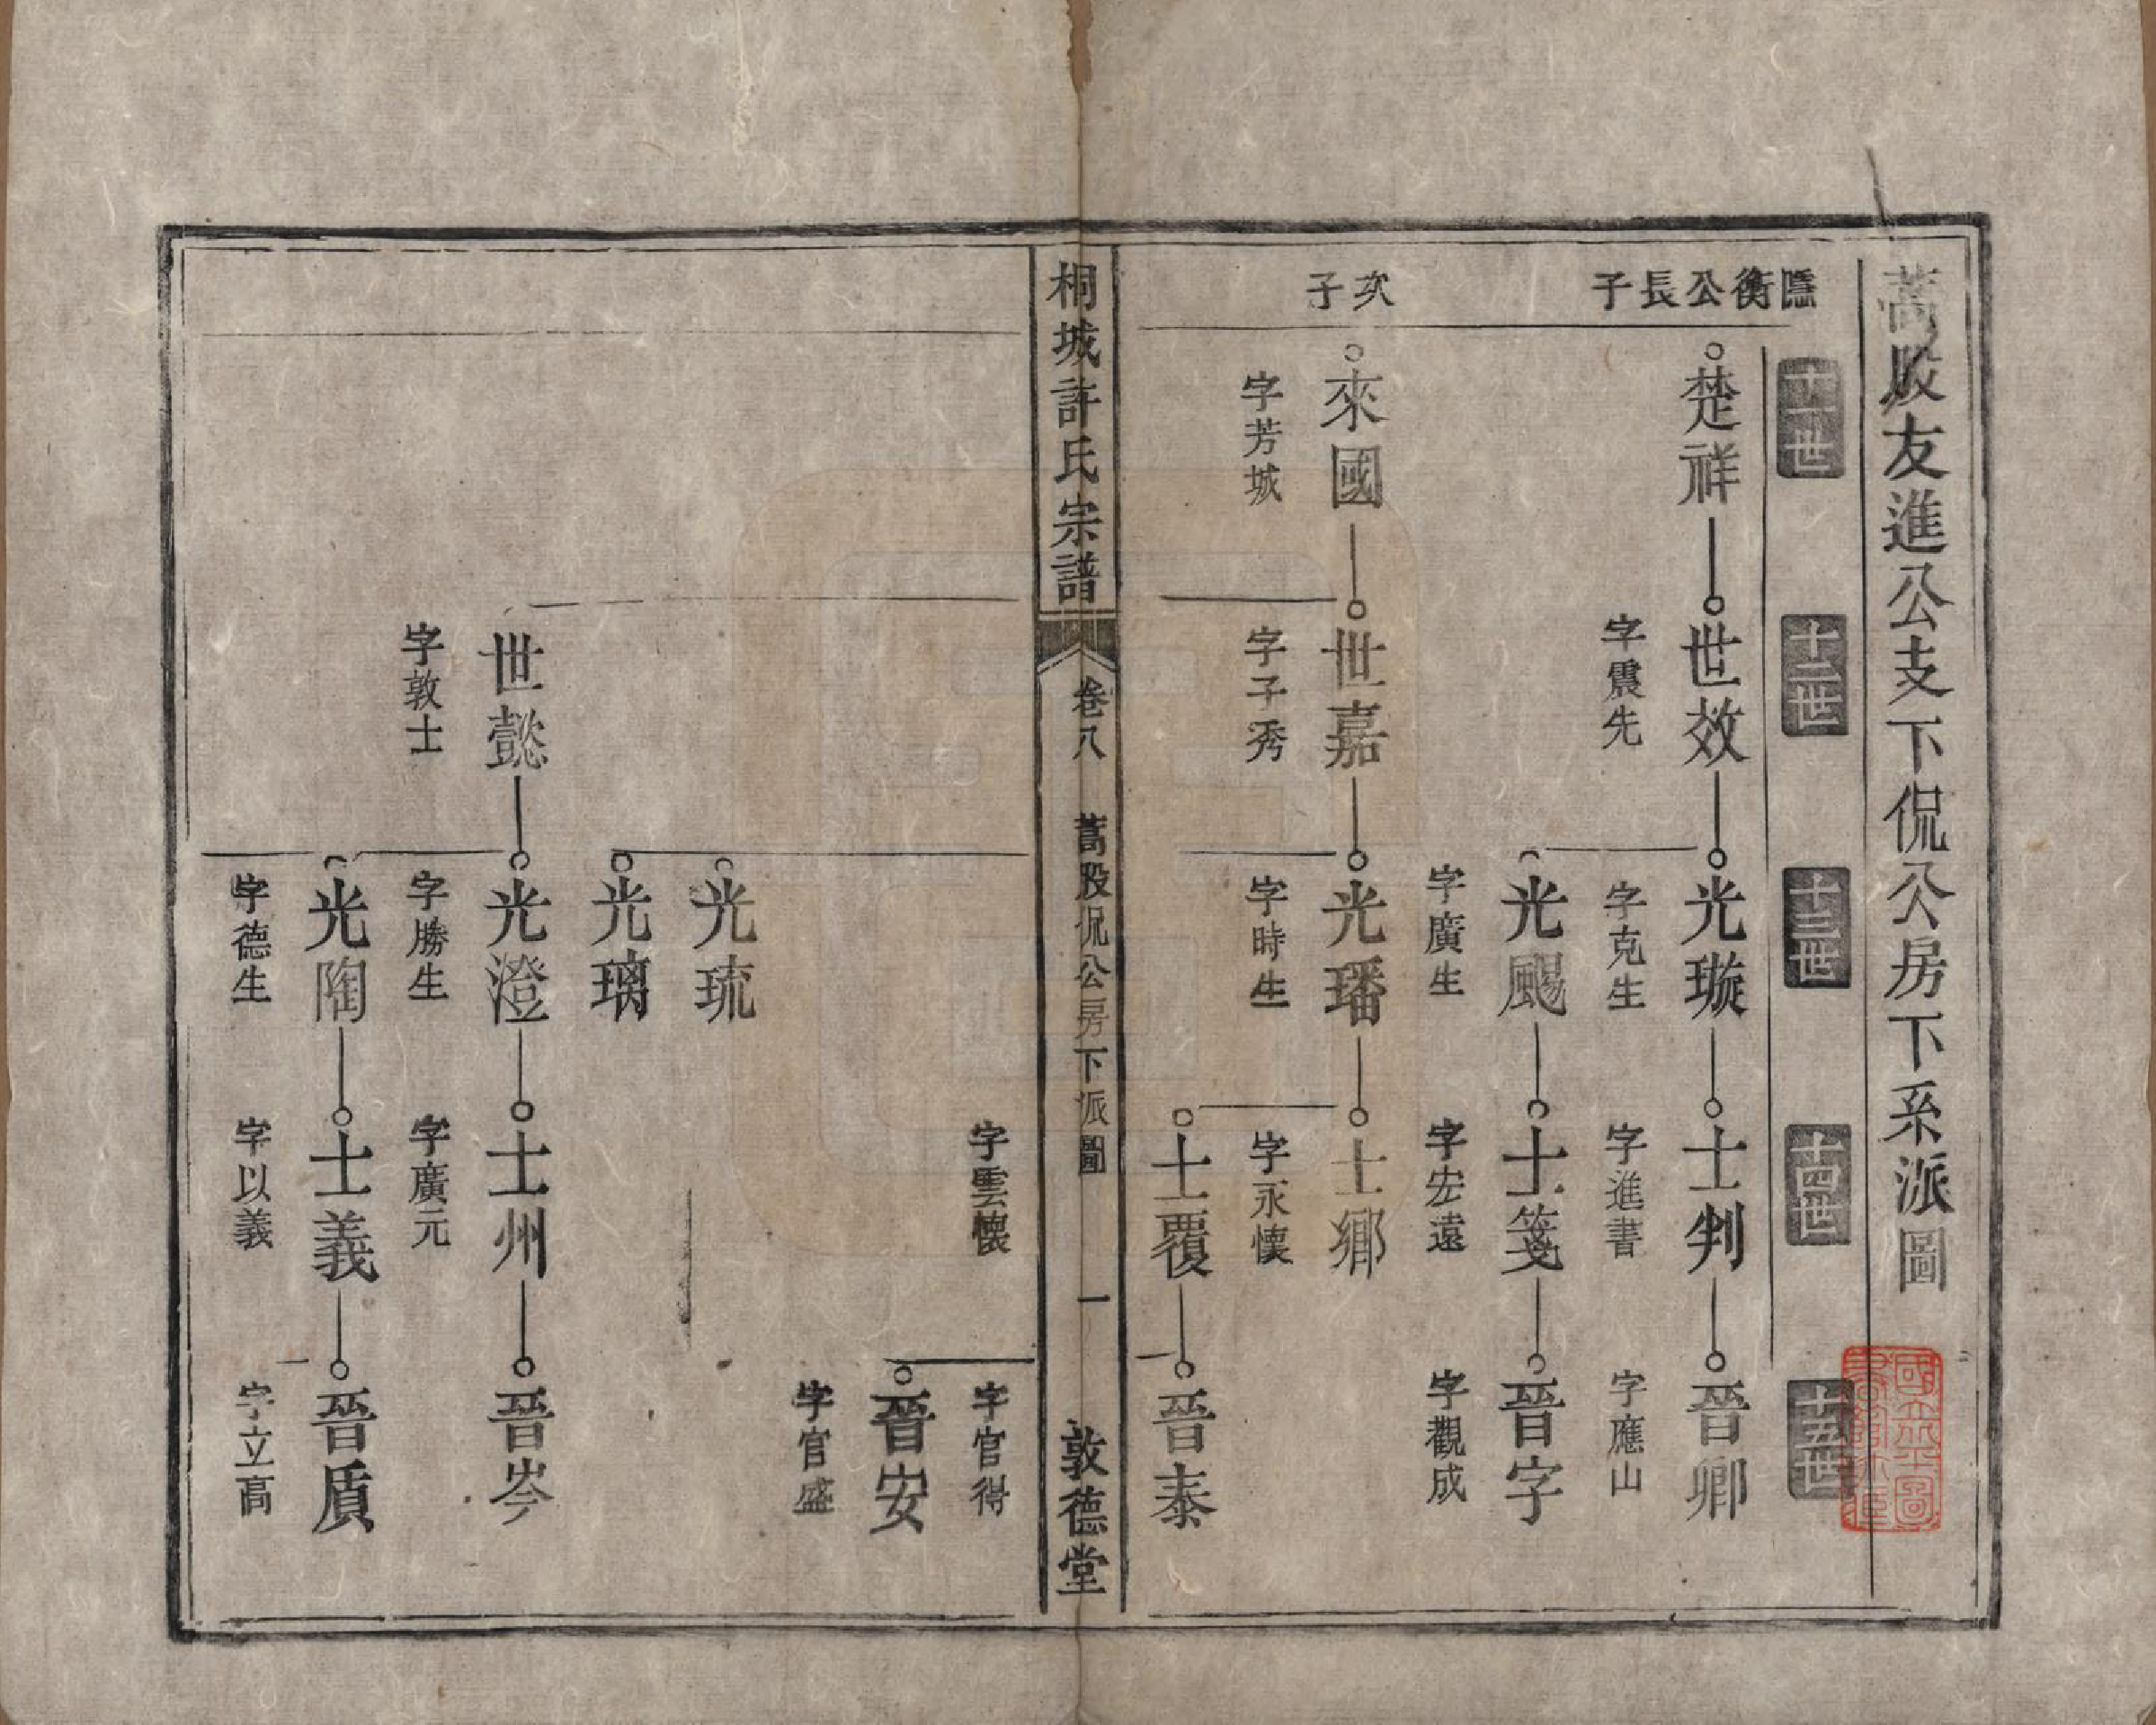 蒿股友進公支下侃公房下系派圖
十一世
十二世
十三世
十四世
十五世
隱衡公長子
楚祥
世效
光璇
士判
晉卿
字震先
字克生
字進書
字應山
光颺
士箋
晉字
字廣生
字宏遠
字觀成
次子
來國
世嘉
光璠
士鄉
字芳城
字子秀
字時生
字永懷
士覆
晉泰
桐城許氏宗譜
卷八
蒿股侃公房下派圖
一
敦德堂
字雲懷
字官得
晉安
字官盛
光琉
光璃
世懿
光澄
士州
晉岑
字敦士
字勝生
字廣元
光陶
士義
晉貭
字德生
字以義
字立高